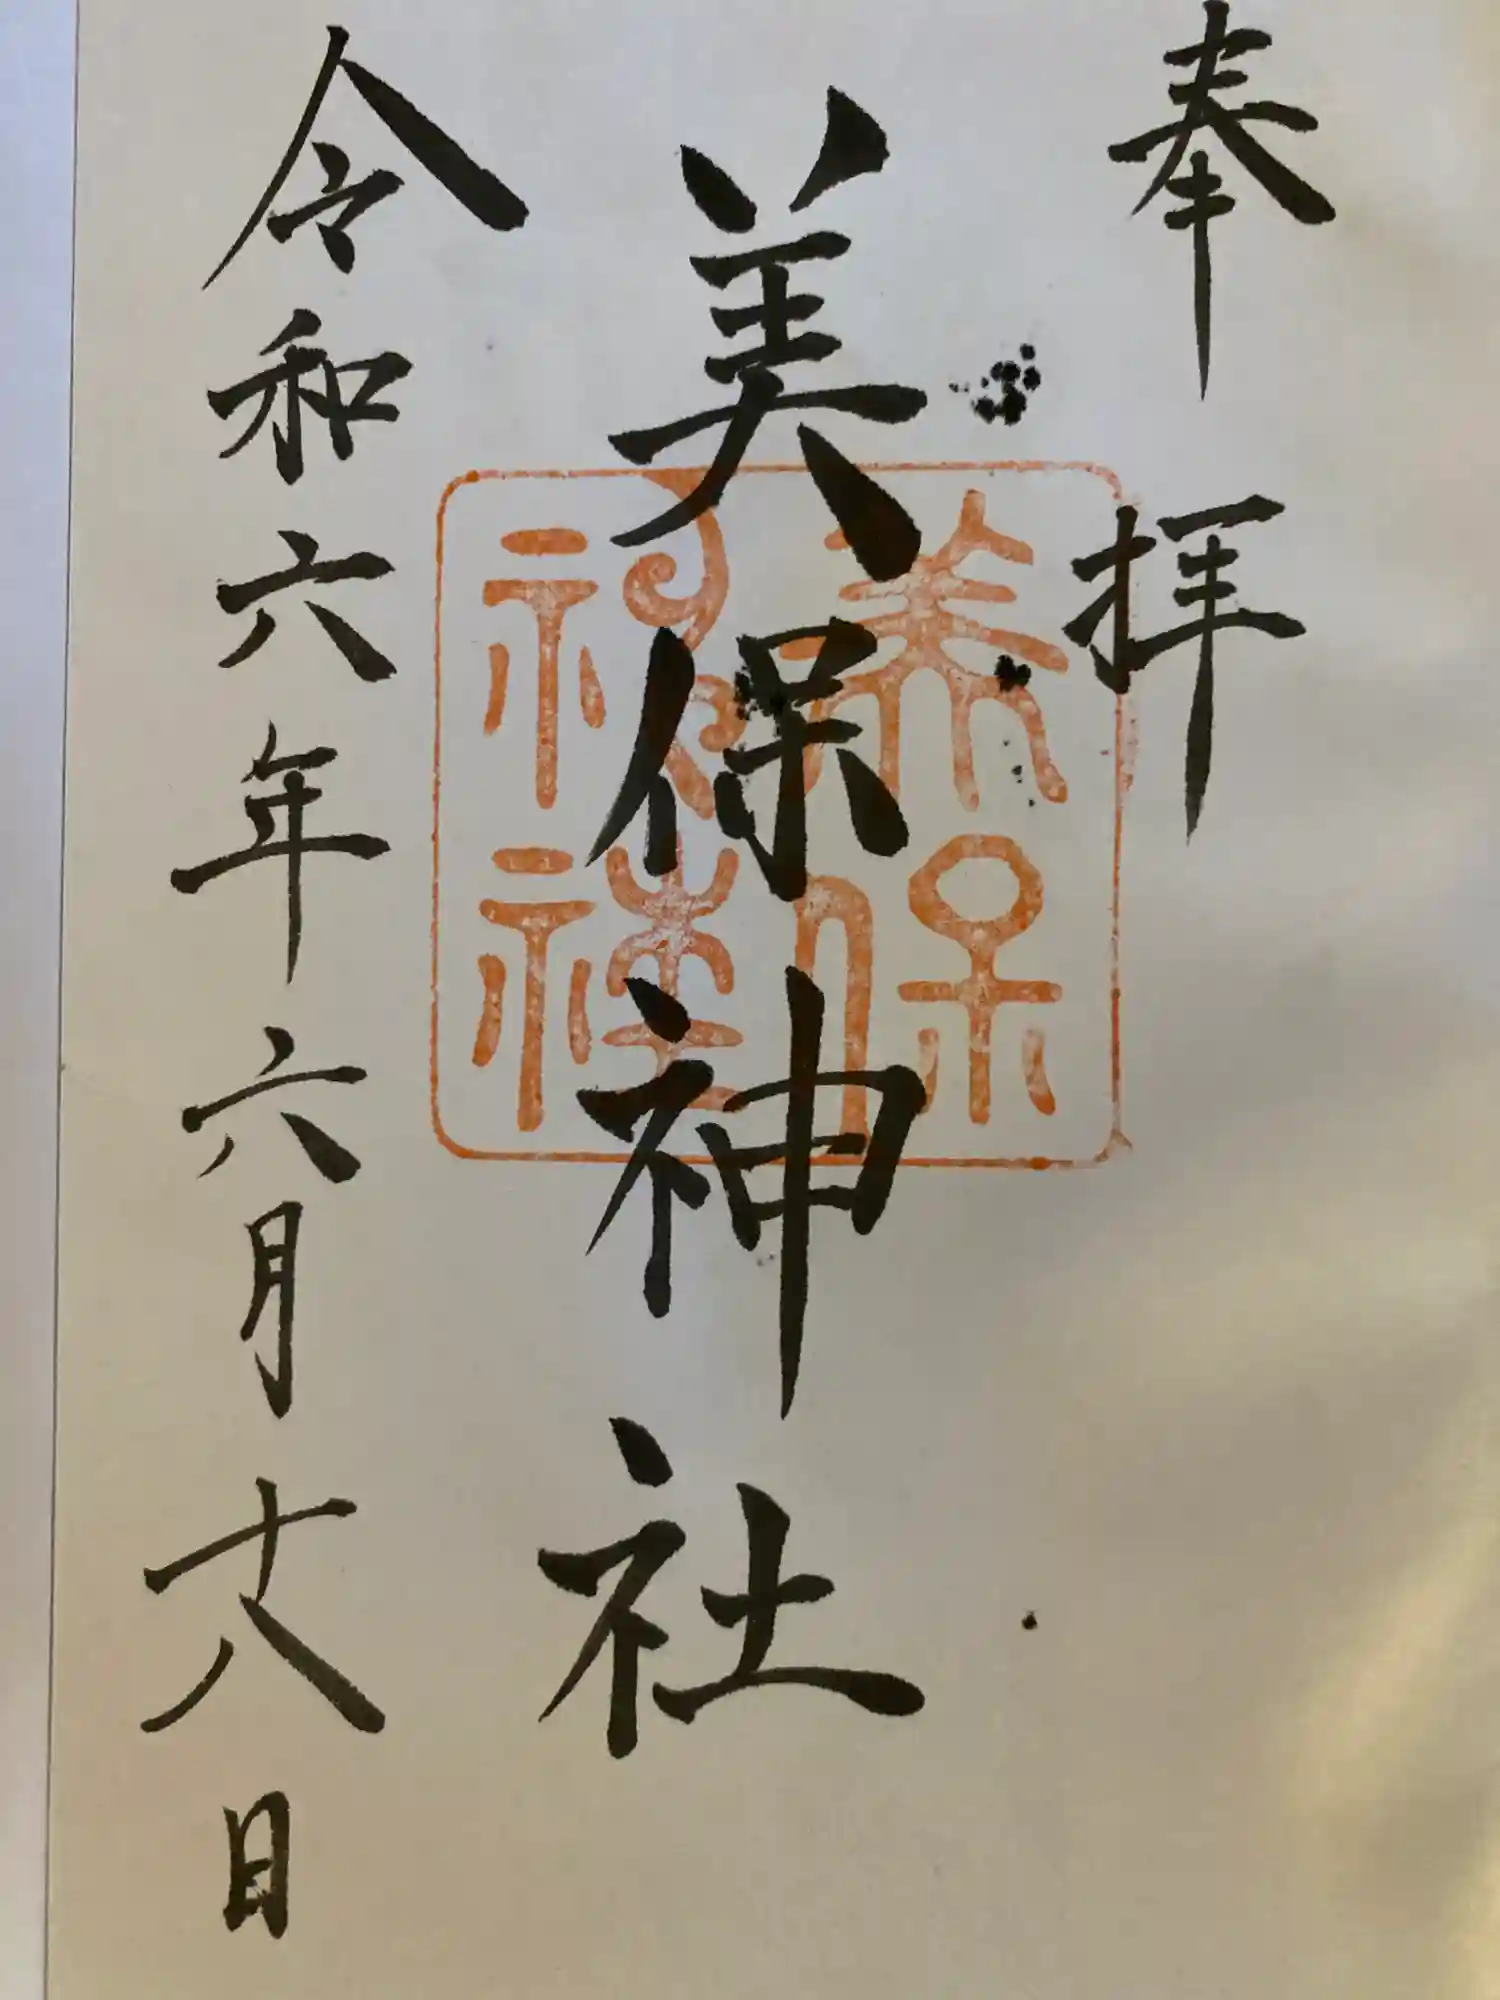 奉拝
美保神社
美保
神社
令和六年六月十八日